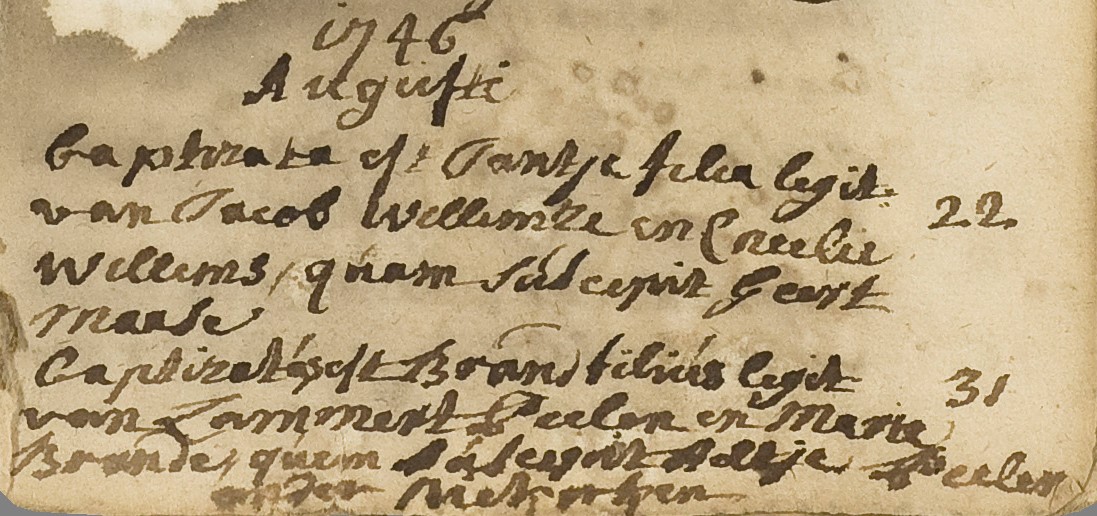 1746
Augusti
baptizata est Jantje filia legit: 22
van Jacob Willemse en Cneelie
Willems, quam suscepit Geert
Maase
baptizatus est Brand filius legit 31
van Lammert Peelen en Maria
Brands, quem suscepit Aeltje Peelen
onder